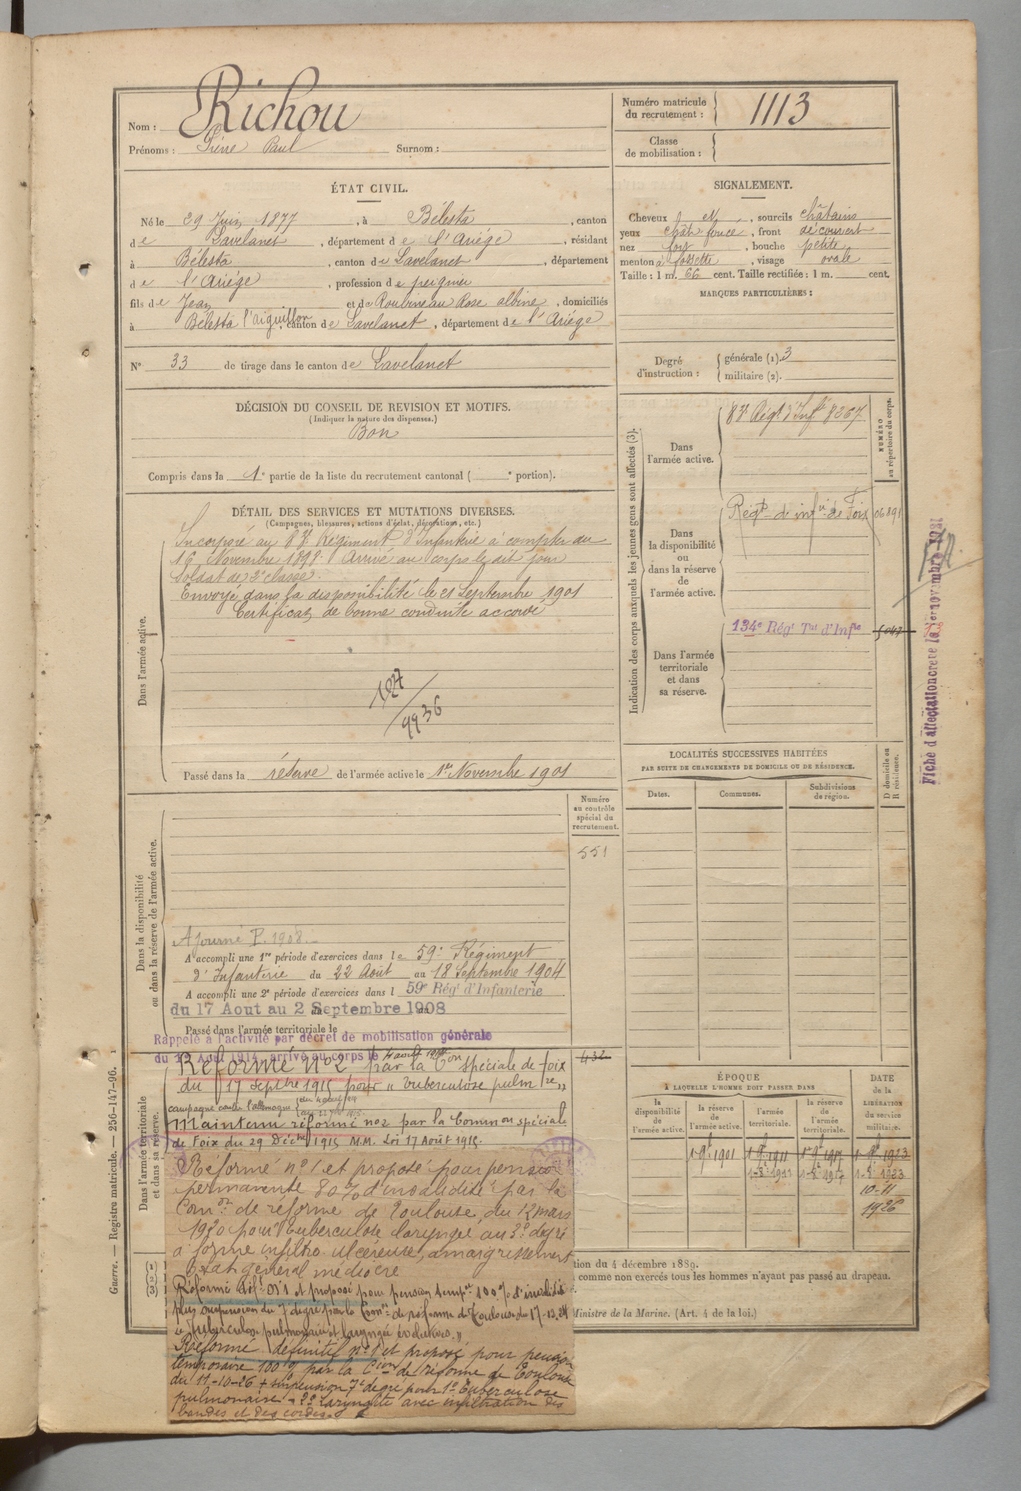 Nom : Richou
Prénoms : Pierre Paul Surnom :
Numéro matricule du recrutement : 1113
Classe de mobilisation :
ÉTAT CIVIL.
Né le 29 Juin 1877, à Bélesta, canton
de Lavelanet, département de l'Ariége, résidant
à Bélesta, canton de Lavelanet, département
de l'Ariége, profession de peignier
fils de Jean et de Roubneau Rose albine, domiciliés
à Bélesta l'aiguillon, canton de Lavelanet, département de l'Ariége
N° 33 de tirage dans le canton de Lavelanet
SIGNALEMENT.
Cheveux N, sourcils châtains
yeux chât foncé, front découvert
nez fort, bouche petite
menton à fossette, visage ovale
Taille : 1 m. 66 cent. Taille rectifiée : 1 m. cent.
MARQUES PARTICULIÈRES :
Degré d'instruction : générale (1). 3
militaire (2).
DÉCISION DU CONSEIL DE REVISION ET MOTIFS.
(Indiquer la nature des dispenses.)
Bon
Compris dans la 1e partie de la liste du recrutement cantonal ( e portion).
DÉTAIL DES SERVICES ET MUTATIONS DIVERSES.
(Campagnes, blessures, actions d'éclat, décorations, etc.)
Dans l'armée active.
Incorporé au 87 Régiment d'Infanterie à compter du
16 Novembre 1898 Arrivé au corps le dit jour
Soldat de 2e classe.
Envoyé dans la disponibilité le 21 Septembre 1901
Certificat de bonne conduite accordé
127
9936
Passé dans la réserve de l'armée active le 1er Novembre 1901
Indication des corps auxquels les jeunes gens sont affectés (3).
NUMÉRO au répertoire du corps.
Dans l'armée active.
87 Régt d'Infie 8267
Dans la disponibilité ou dans la réserve de l'armée active.
Régt d'infie de Foix 06891
Dans l'armée territoriale et dans sa réserve.
134e Régt Tal d'Infie
Fiche d'affectation créée le 1er novembre 1921
LOCALITÉS SUCCESSIVES HABITÉES
PAR SUITE DE CHANGEMENTS DE DOMICILE OU DE RÉSIDENCE.
Dates. Communes. Subdivisions de région. D domicile ou R résidence.
Numéro au contrôle spécial du recrutement.
551
Dans la disponibilité ou dans la réserve de l'armée active.
Ajourné P. 1908.
A accompli une 1re période d'exercices dans le 59e Régiment
d'Infanterie du 22 Août au 18 Septembre 1904
A accompli une 2e période d'exercices dans l 59e Régt d'Infanterie
du 17 Aout au 2 Septembre 1908
Passé dans l'armée territoriale le
Rappelé à l'activité par décret de mobilisation générale
du 1er Août 1914, arrivé au corps le 4 août 1914
432
Dans l'armée territoriale et dans sa réserve.
Réformé n°2 par la Con spéciale de foix
du 17 septbre 1915 pour " tuberculose pulmre "
campagne contre l'allemagne
Maintenu réformé n°2 par la Common spéciale
de Foix du 29 Décbre 1915 M.M. Loi 17 Août 1915.
Réformé n°1 et proposé pour pension
permanente 80% d'invalidité par la
Comon de réforme de Toulouse, du 12 mars
1920 pour tuberculose laryngée au 3e degré
à forme infiltro ulcéreuse, amaigrissement
Etat général médiocre
Réformé déft n°1 et proposé pour pension tempre 100% d'invalidité
plus suspension du 7 degré par la Comon de réforme de Toulouse du 17-12-24
Tuberculose pulmonaire et laryngée évolutive
Réformé définitif n°1 et proposé pour pension
temporaire 100% par la Cion de réforme de Toulouse
du 11-10-26 + suspension 7e degré pour 1° Tuberculose
pulmonaire - 2° Laryngite avec infiltration des
bandes et des cordes
ÉPOQUE
À LAQUELLE L'HOMME DOIT PASSER DANS
la disponibilité de l'armée active. la réserve de l'armée active. l'armée territoriale. la réserve de l'armée territoriale. DATE de la LIBÉRATION du service militaire.
1 9bre 1901 1 9bre 1911 1 9bre 1917 1 9bre 1923
10-11
1926
tion du 4 décembre 1889.
comme non exercés tous les hommes n'ayant pas passé au drapeau.
Ministre de la Marine. (Art. 4 de la loi.)
Guerre. — Registre matricule. — 256-147-96.